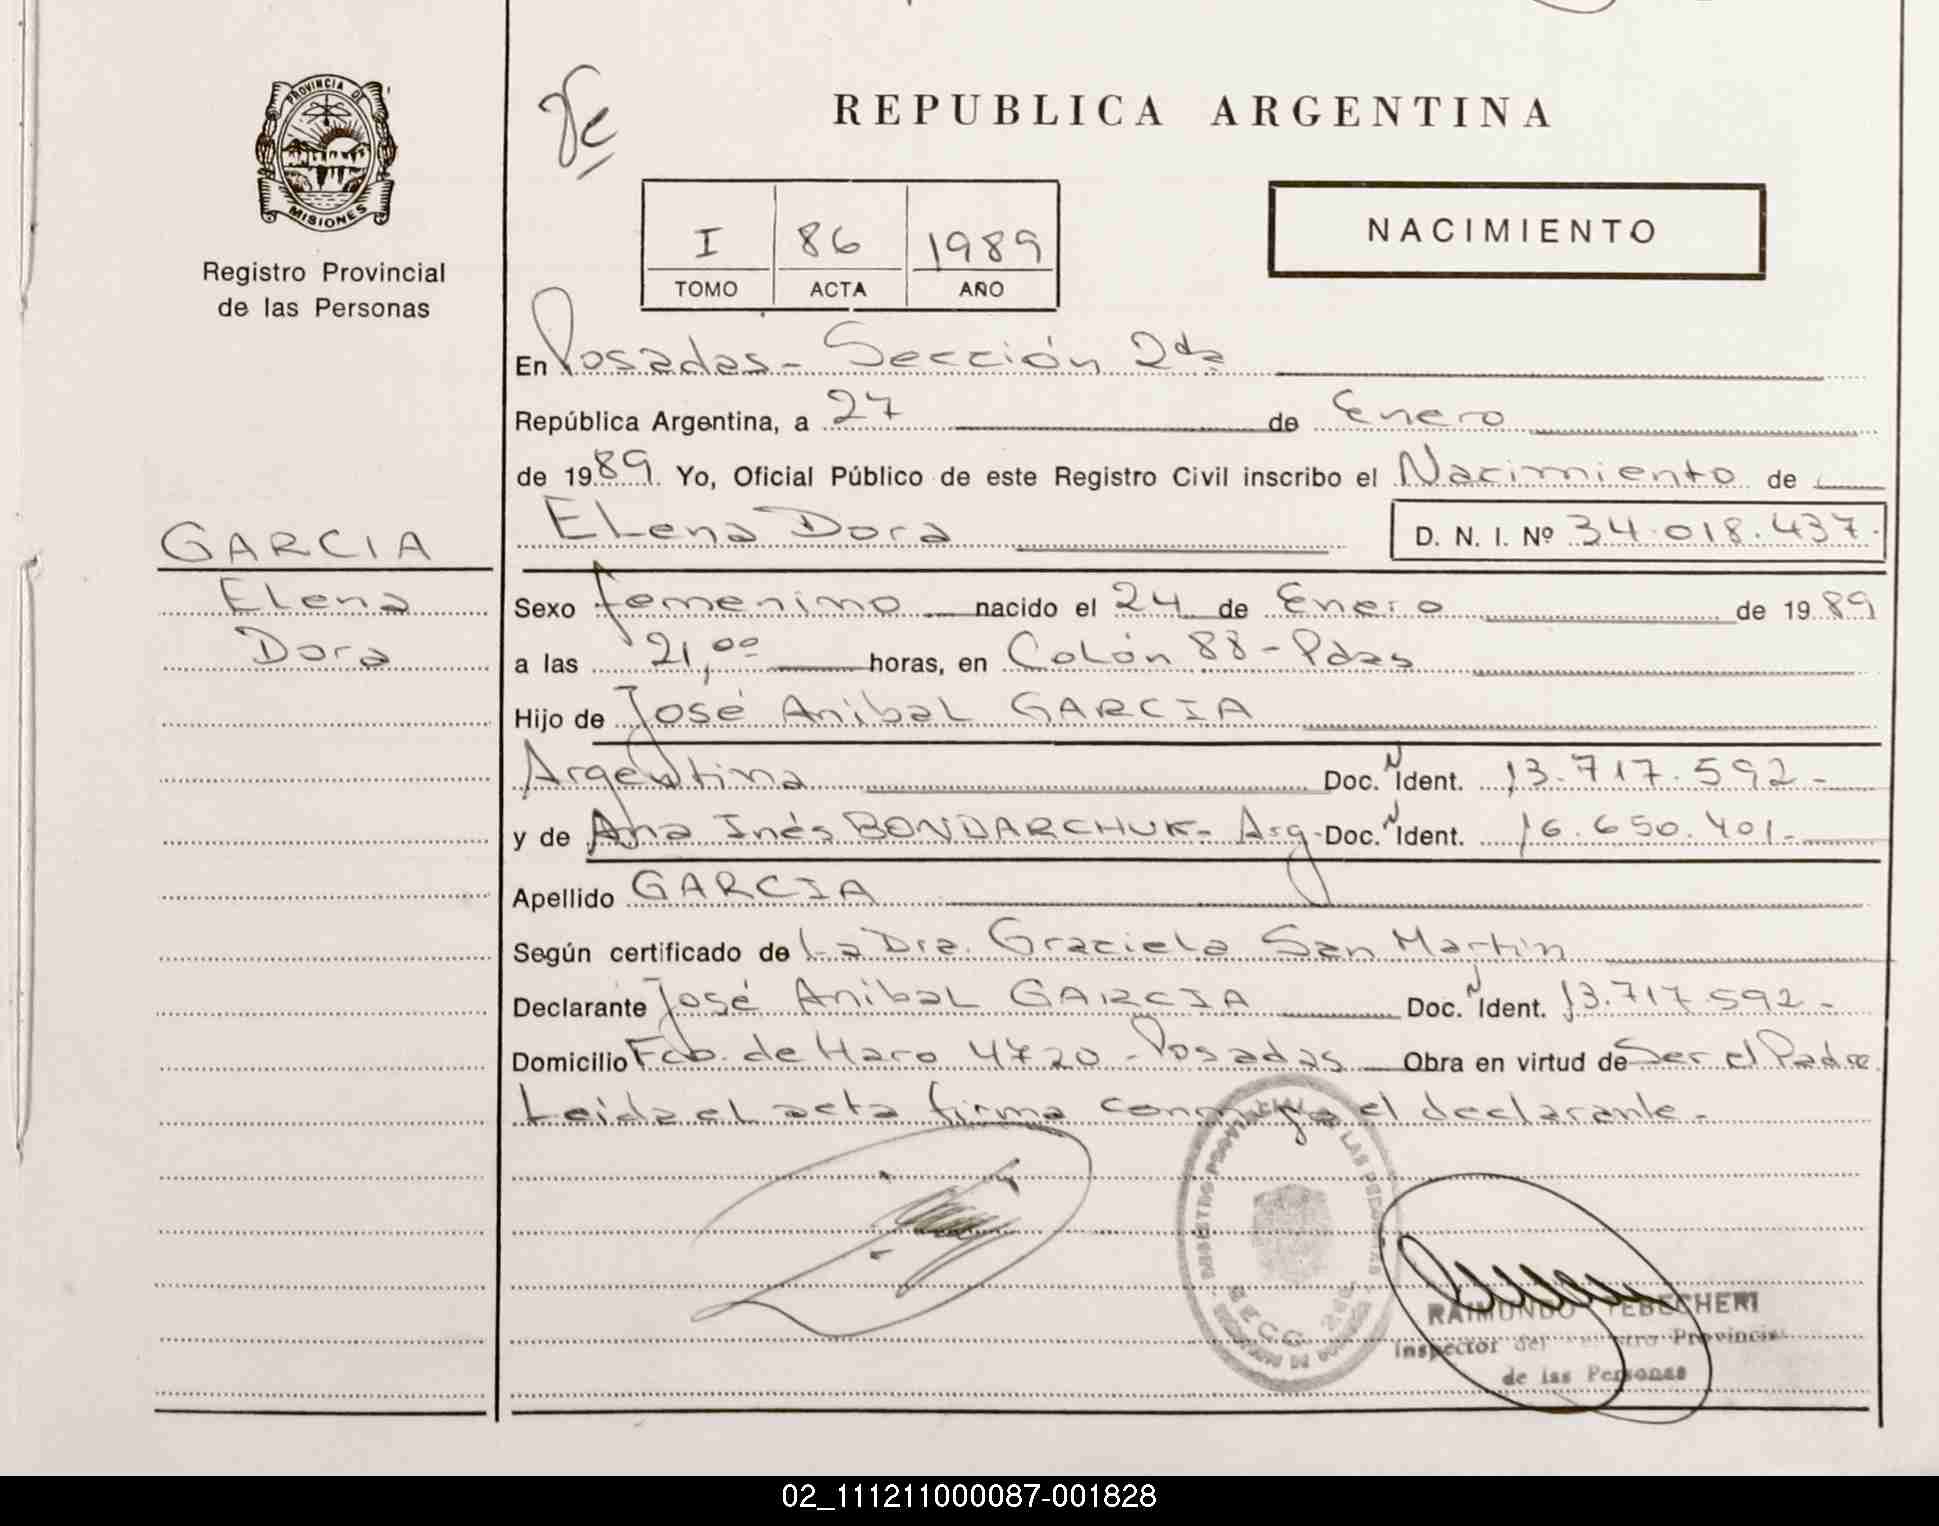 PROVINCIA DE
MISIONES
Registro Provincial
de las Personas
REPUBLICA ARGENTINA
NACIMIENTO
I 86 1989
TOMO ACTA AÑO
En Posadas - Sección 2da
República Argentina, a 27 de Enero
de 1989 Yo, Oficial Público de este Registro Civil inscribo el Nacimiento de
Elena Dora D. N. I. Nº 34.018.437.
GARCIA
Elena
Dora
Sexo femenino nacido el 24 de Enero de 1989
a las 21,00 horas, en Colón 88 - Pdas
Hijo de José Anibal GARCIA
Argentina Doc. N Ident. 13.717.592 -
y de Ana Inés BONDARCHUK - Arg. Doc. N Ident. 16.650.401 -
Apellido GARCIA
Según certificado de La Dra. Graciela San Martín
Declarante José Anibal GARCIA Doc. N Ident. 13.717.592 -
Domicilio Fco. de Haro 4720 - Posadas Obra en virtud de Ser el Padre
Leida el acta firma conmigo el declarante -
RAIMUNDO TEBECHERI
Inspector del Provincial
de las Personas
02_111211000087-001828